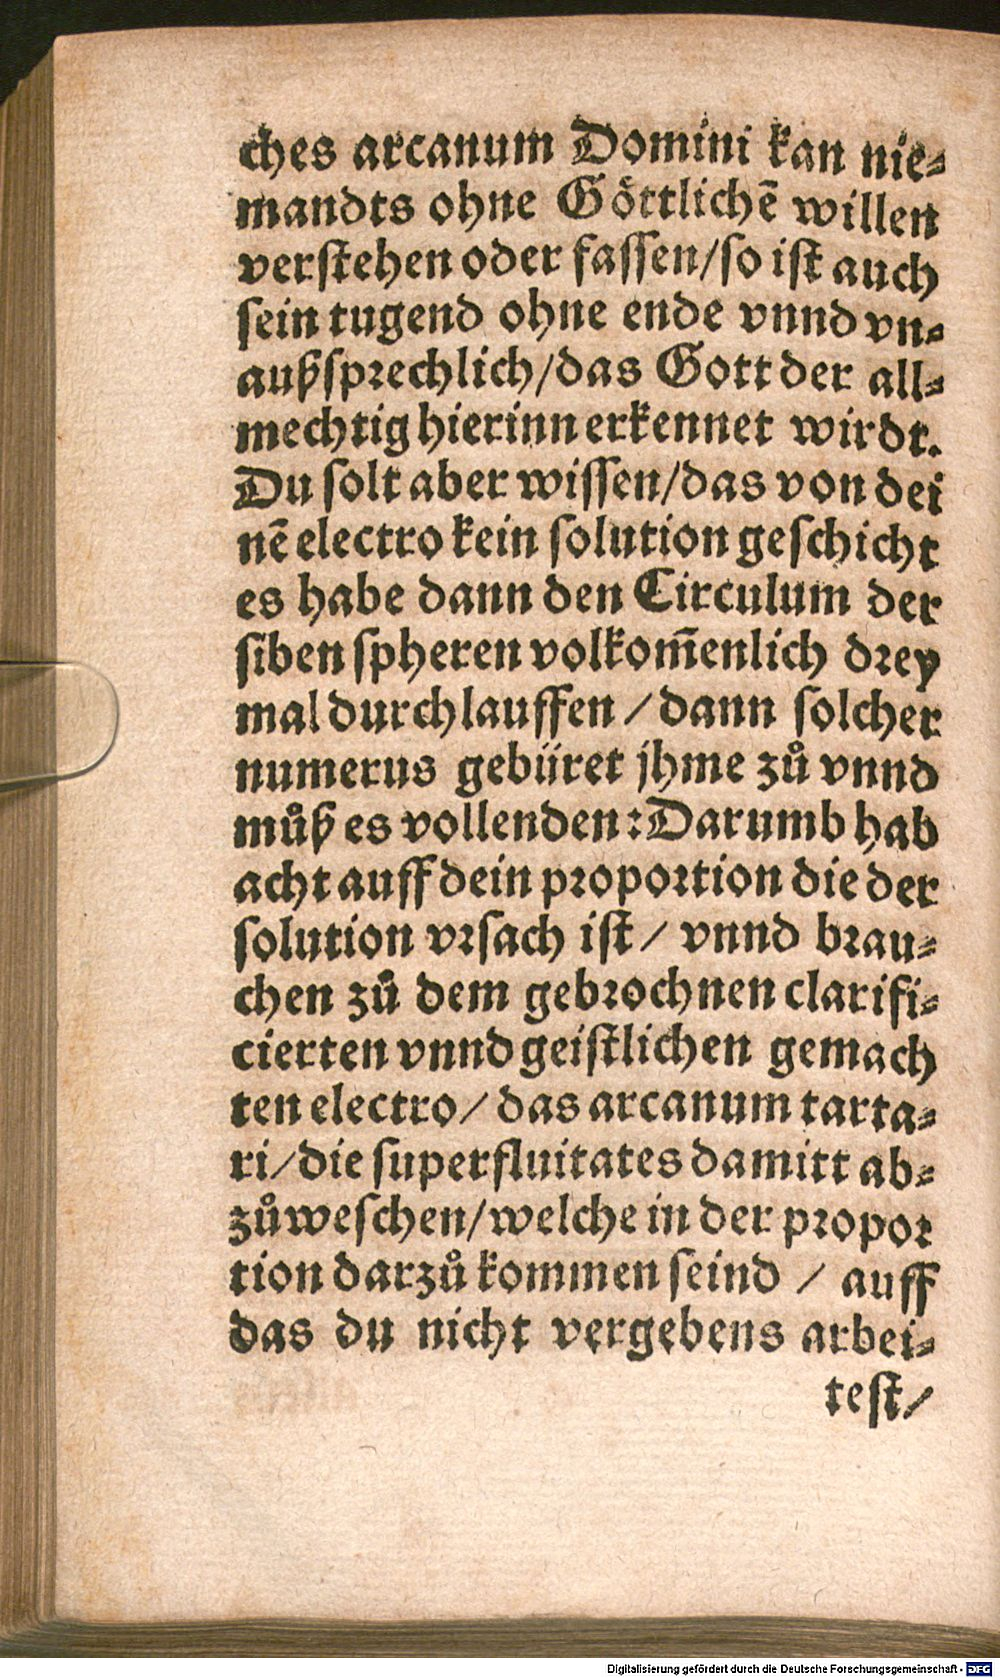 ches arcanum Domini kan nie⸗
mandts ohne Göttlichē willen
verstehen oder fassen/so ist auch
sein tugend ohne ende vnnd vn⸗
außsprechlich/das Gott der all⸗
mechtig hierinn erkennet wirdt.
Du solt aber wissen/das von dei
nē electro kein solution geschicht
es habe dann den Circulum der
siben spheren volkom̄enlich drey
mal durchlauffen / dann solcher
numerus gebüret jhme zů vnnd
můß es vollenden: Darumb hab
acht auff dein proportion die der
solution vrsach ist / vnnd brau⸗
chen zů dem gebrochnen clarifi⸗
cierten vnnd geistlichen gemach
ten electro/ das arcanum tarta⸗
ri/die superfluitates damitt ab⸗
zůweschen/welche in der propor
tion darzů kommen seind / auff
das du nicht vergebens arbei⸗
test/
Digitalisierung gefördert durch die Deutsche Forschungsgemeinschaft - DFG